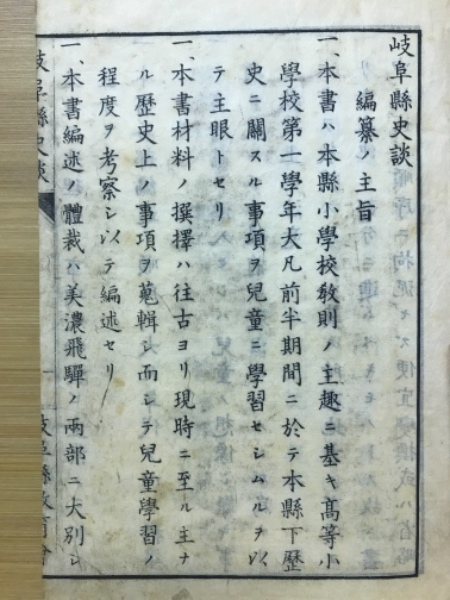 岐阜縣史談
編纂ノ主旨
一、本書ハ本縣小學校敎則ノ主趣ニ基キ高等小
學校第一學年大凡前半期間ニ於テ本縣下歷
史ニ關スル事項ヲ兒童ニ學習セシムルヲ以
テ主眼トセリ
一、本書材料ノ撰擇ハ往古ヨリ現時ニ至ル主ナ
ル歷史上ノ事項ヲ蒐輯シ而シテ兒童學習ノ
程度ヲ考察シ以テ編述セリ
一、本書編述ノ體裁ハ美濃飛驒ノ兩部ニ大別シ
岐阜縣史談
一
岐阜縣敎育會